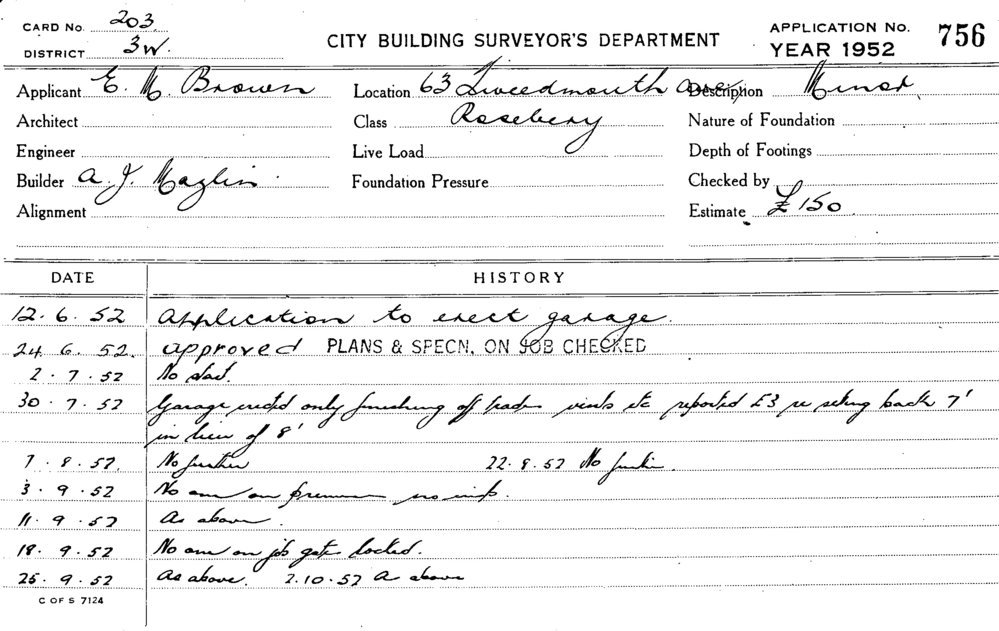 CARD No. 203
DISTRICT 3W.
CITY BUILDING SURVEYOR'S DEPARTMENT
APPLICATION No. 756
YEAR 1952
Applicant E. M. Brown Location 63 Tweedmouth ave, Description Minor.
Architect Class Rosebery Nature of Foundation
Engineer Live Load Depth of Footings
Builder A. J. Maglin Foundation Pressure Checked by
Alignment Estimate £150
DATE HISTORY
12.6.52 Application to erect garage.
24.6.52. approved PLANS & SPECN. ON JOB CHECKED
2.7.52 No start.
30.7.52 Garage erected only finishing off trades vents etc reported £3 re seting back 7'
in lieu of 8'
7.8.52. No further 22.8.52 No further.
3.9.52 No one on premises no insp.
11.9.52 As above.
18.9.52 No one on job gate locked.
25.9.52 As above. 2.10.52 As above
C OF S 7124